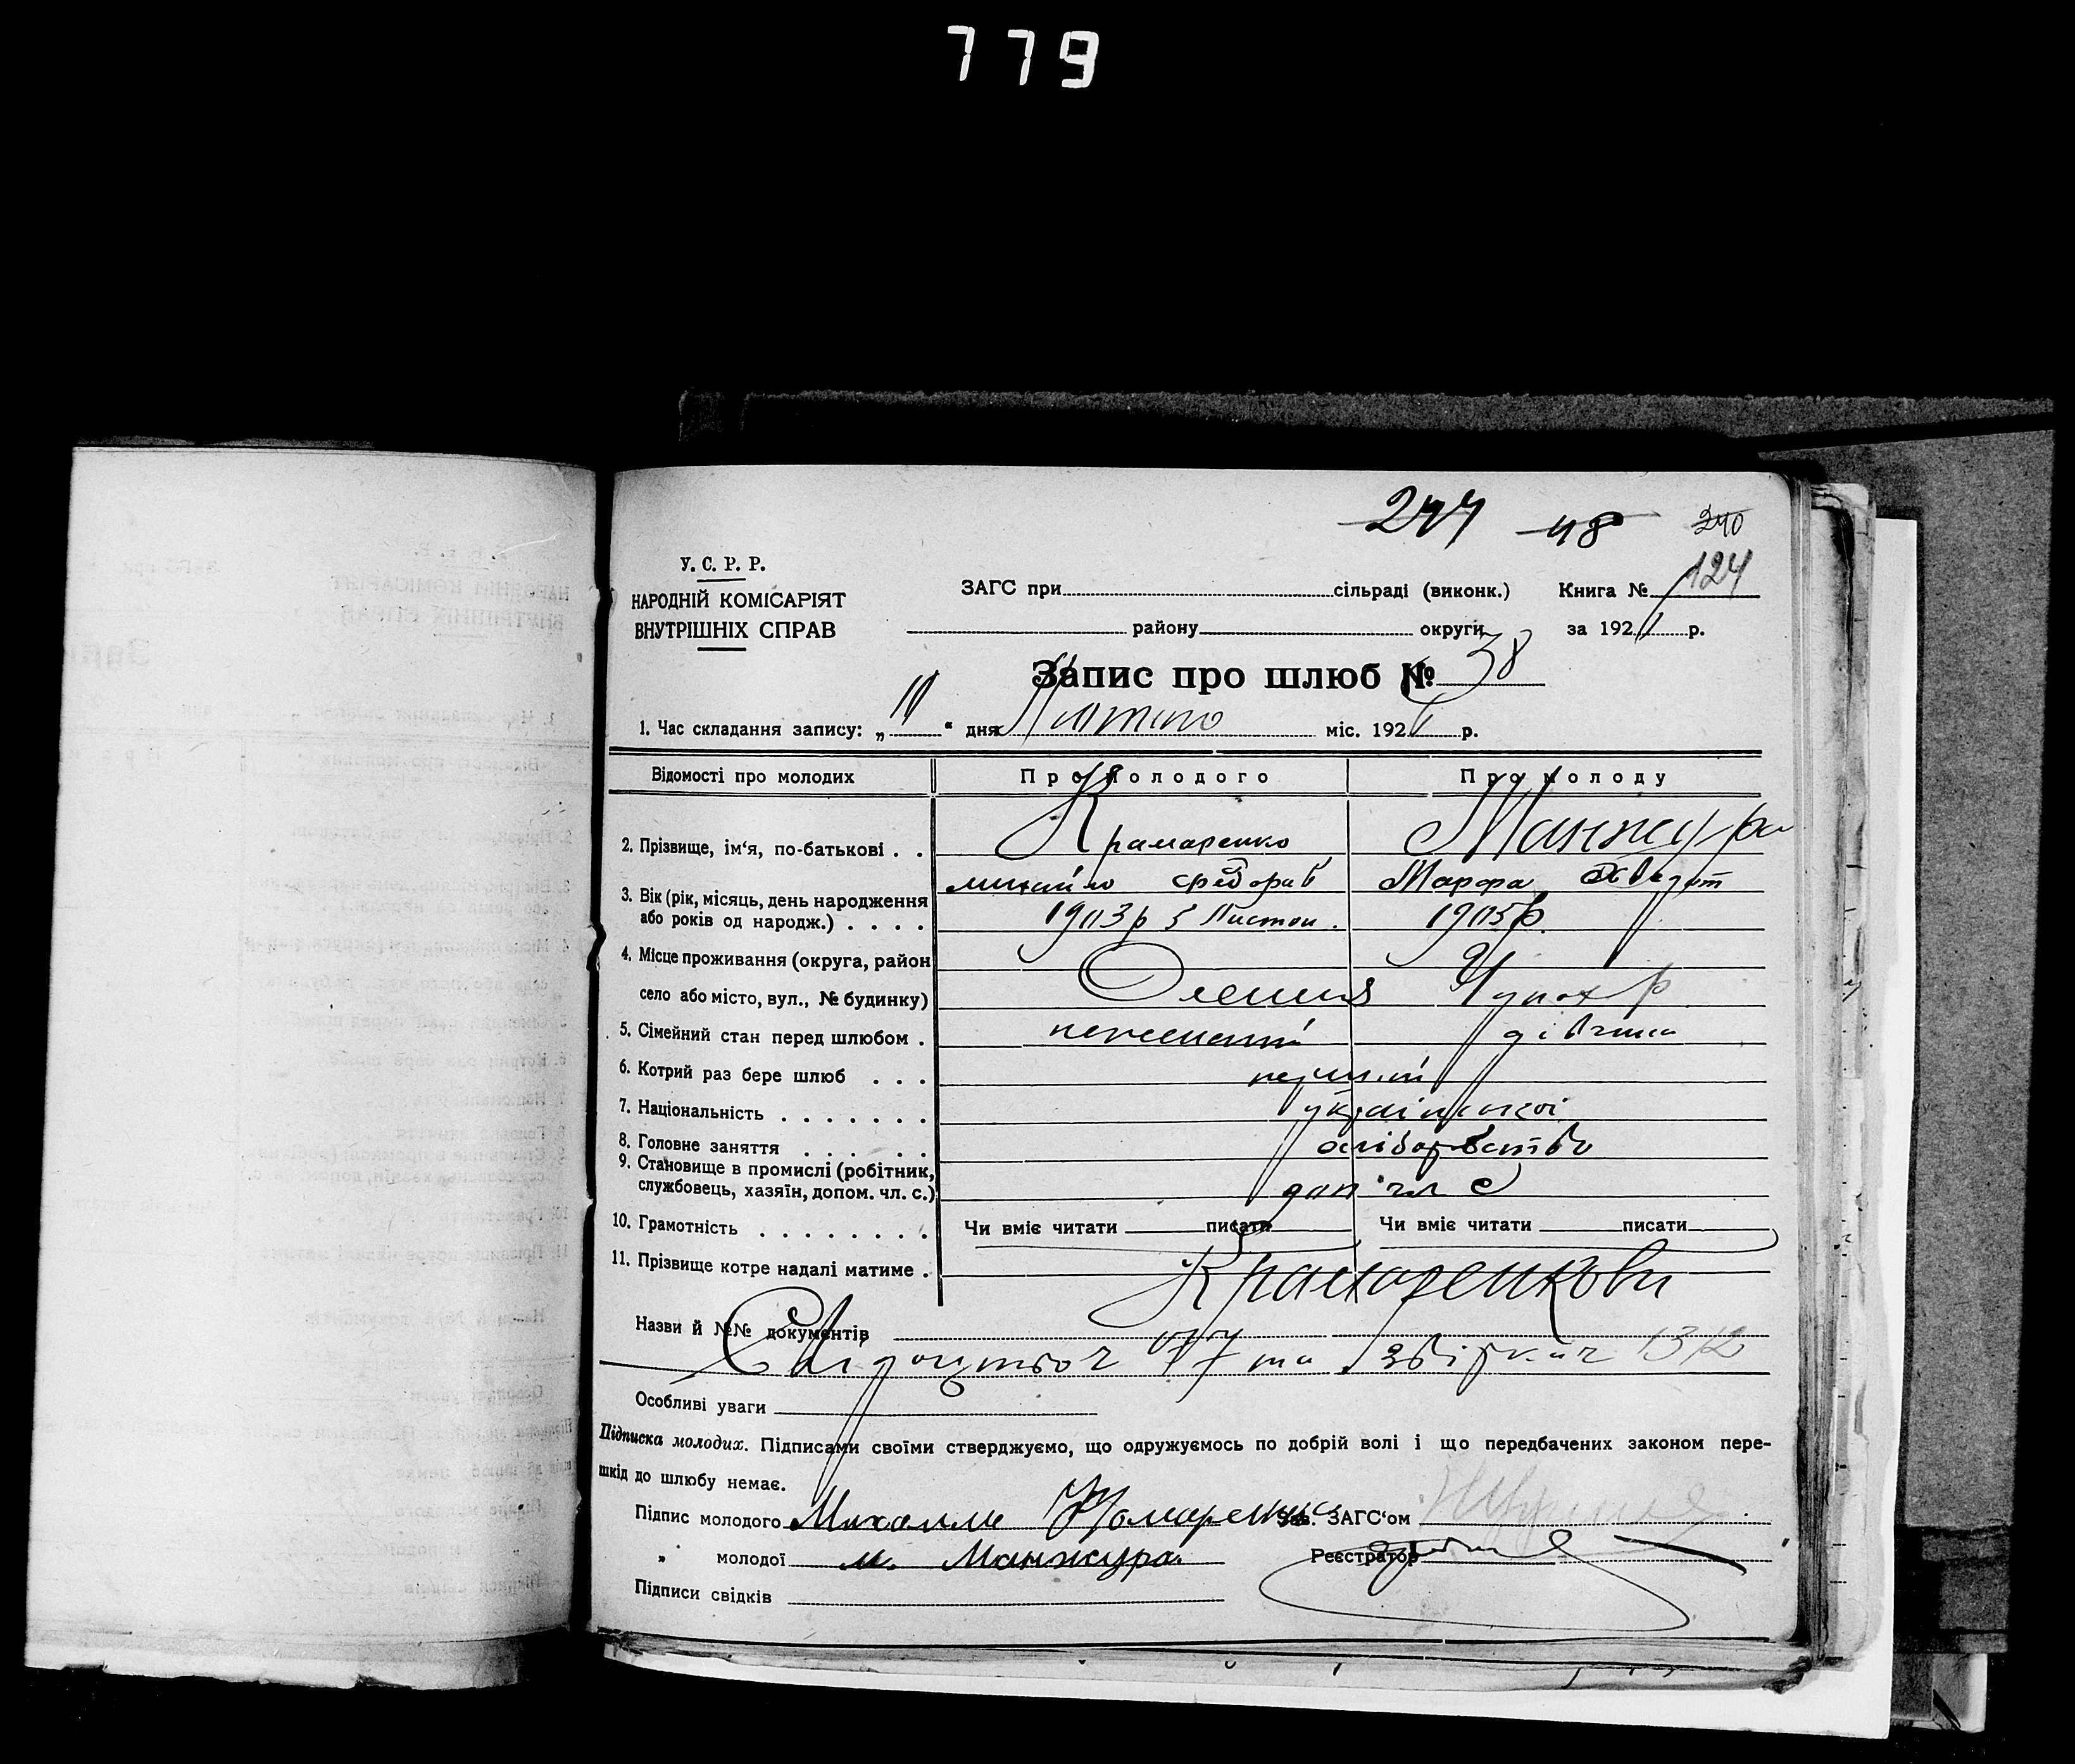 779
244 48 240
У. С. Р. Р.
НАРОДНІЙ КОМІСАРІЯТ
ВНУТРІШНІХ СПРАВ
ЗАГС при сільраді (виконк.) Книга № 124
району округи за 192 р.
Запис про шлюб № 38
1. Час складання запису: „ “ дня Лютого міс. 192 р.
Відомості про молодих Про молодого Про молоду
2. Прізвище, ім‘я, по-батькові . . Крамаренко Манжура
михайло Марфа
3. Вік (рік, місяць, день народження
або років од народж.) . . . . 1903р 5 Листоп. 1905р.
4. Місце проживання (округа, район
село або місто, вул., № будинку)
5. Сімейний стан перед шлюбом . нежеманий дівчина
6. Котрий раз бере шлюб . . . перший
7. Національність . . . . . . . української
8. Головне заняття . . . . . .
9. Становище в промислі (робітник,
службовець, хазяїн, допом. чл. с.) доп чл с
10. Грамотність . . . . . . . . Чи вміє читати писати Чи вміє читати писати
11. Прізвище котре надалі матиме . Крамаренкови
Назви й №№ документів
77 та 1312
Особливі уваги
Підписка молодих. Підписами своїми стверджуємо, що одружуємось по добрій волі і що передбачених законом пере-
шкід до шлюбу немає.
Підпис молодого Зав. ЗАГС‘ом
„ молодої м. Манжура Реєстратор
Підписи свідків